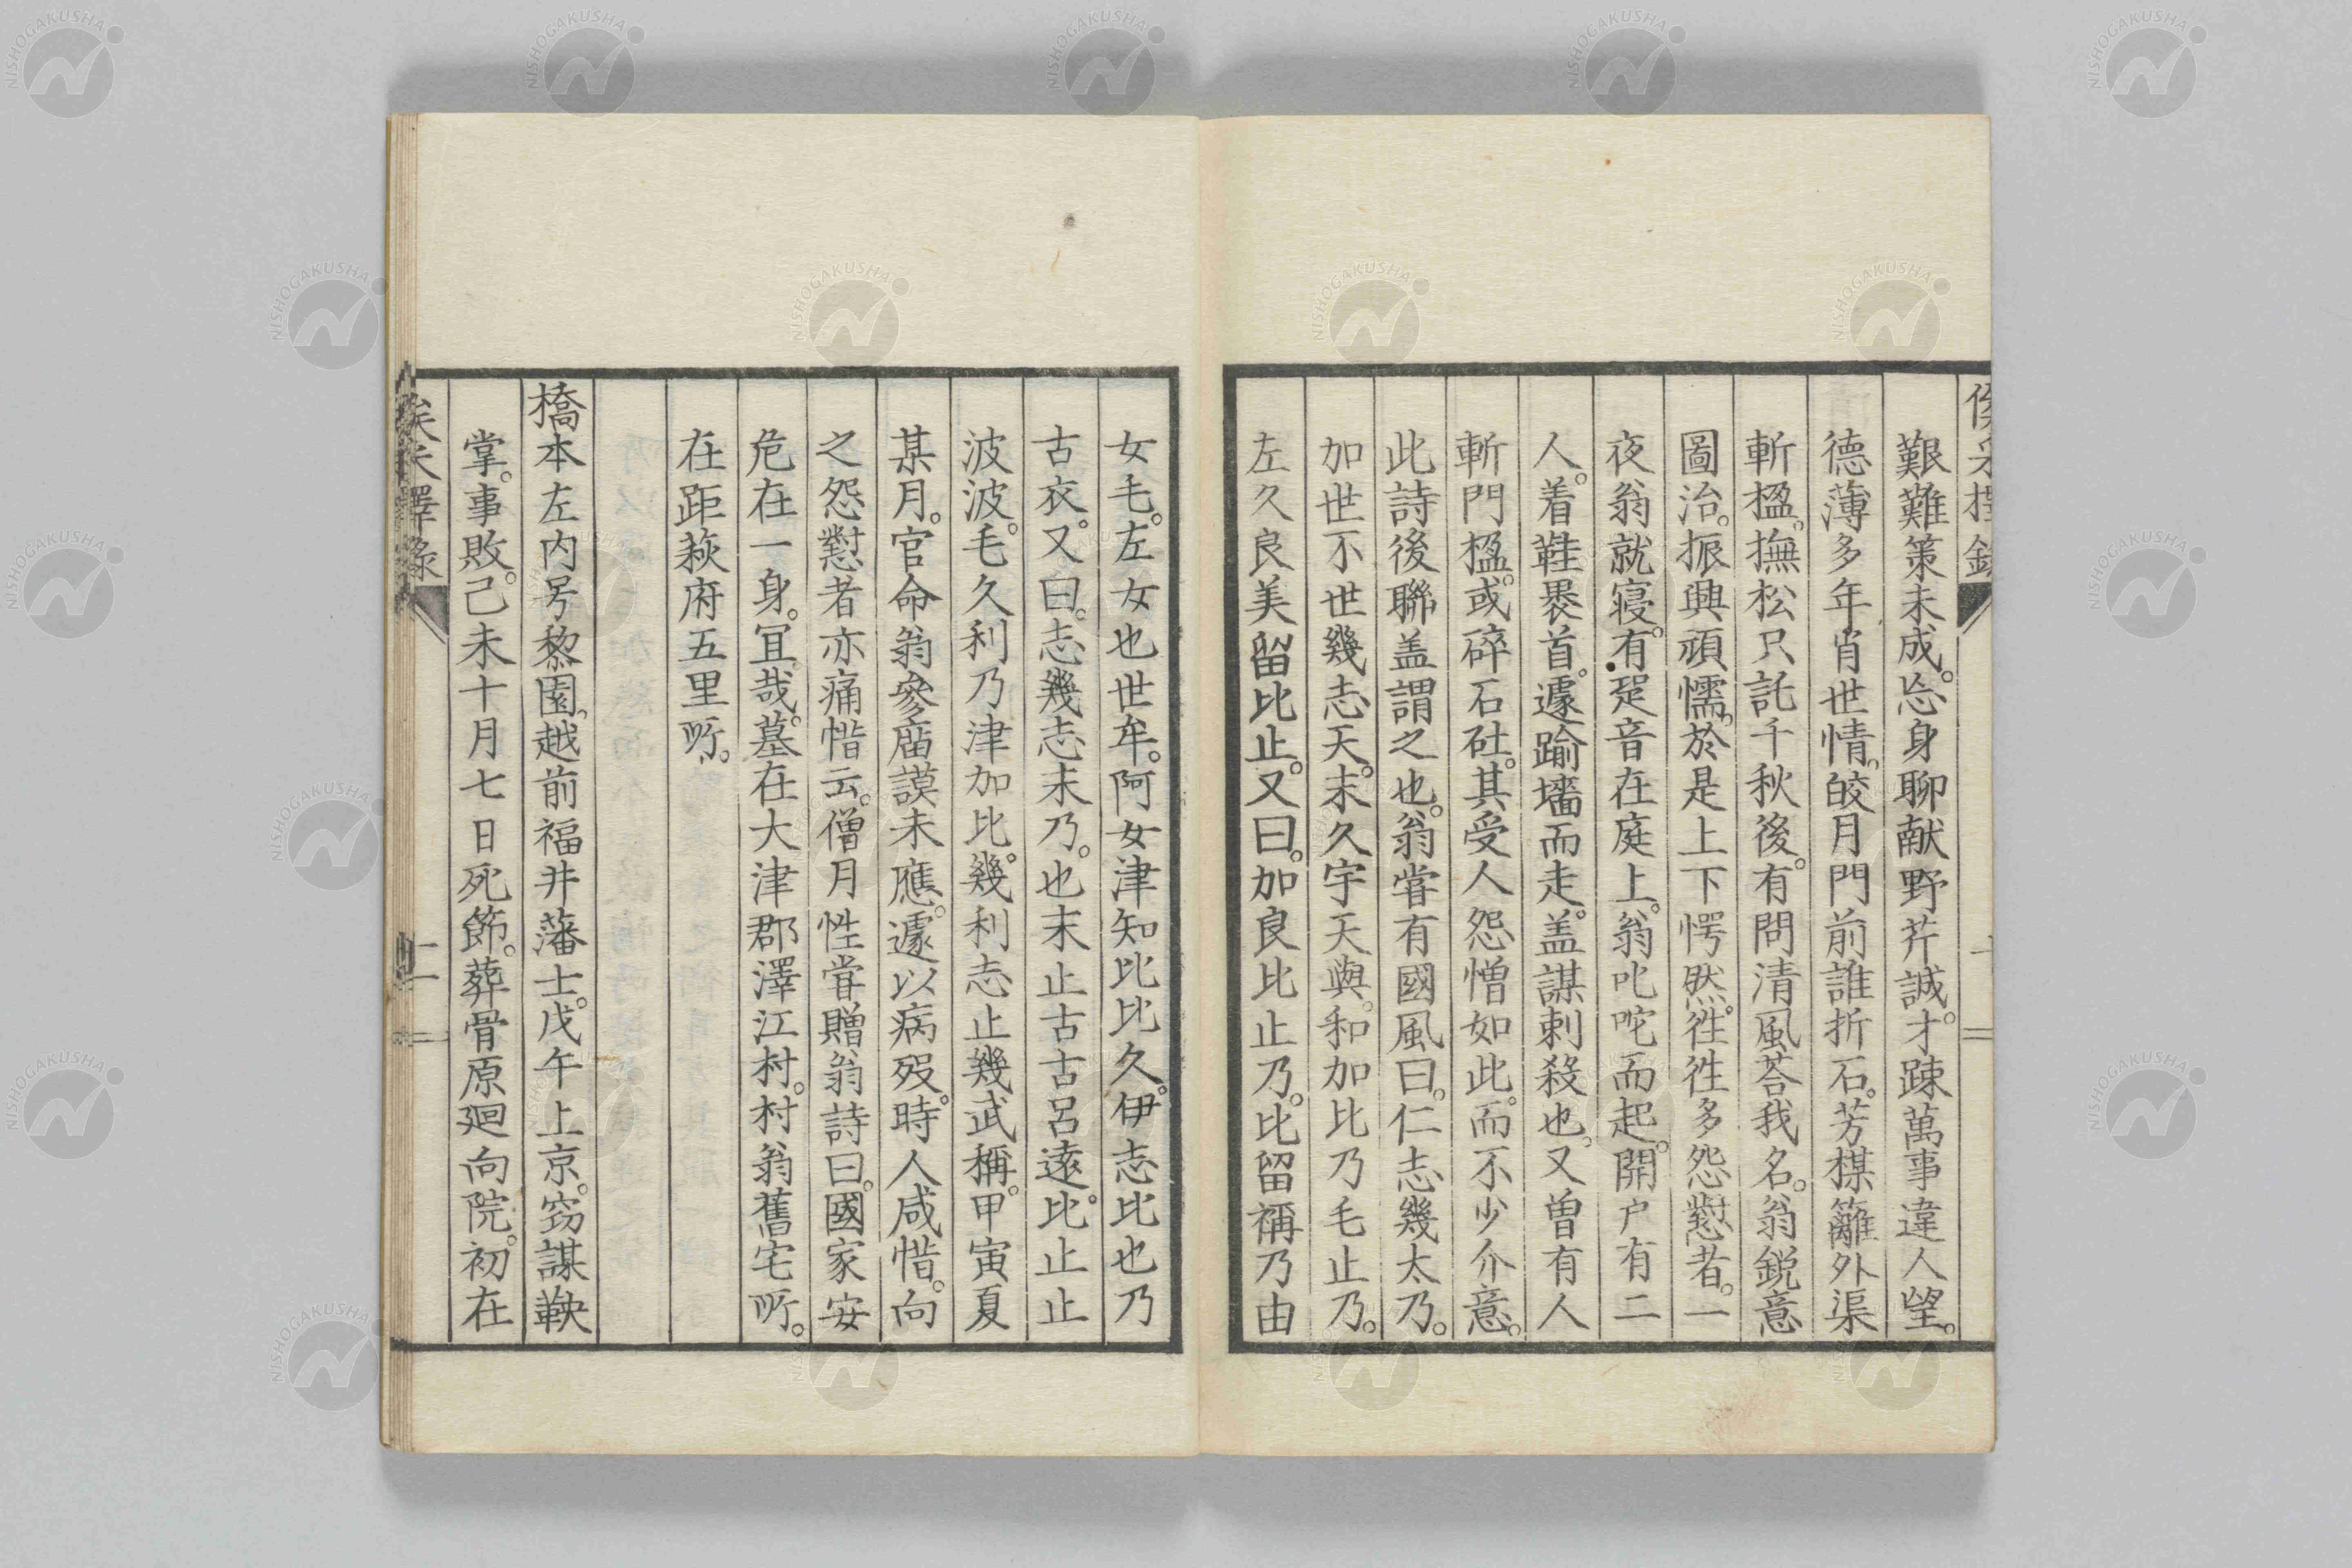 俟采擇錄
艱難策未成。忘身聊献野芹誠。才踈萬事違人望。
德薄多年背世情。皎月門前誰折石。芳楳籬外渠
斬楹。撫松只託千秋後。有問清風荅我名。翁鋭意
圖治。振興頑懦。於是上下愕然。徃徃多怨懟者。一
夜翁就寝。有跫音在庭上。翁叱咤而起。開户有二
人。着鞋褁首。遽踰墻而走。盖謀刺殺也。又曽有人
斬門楹。或碎石砫。其受人怨憎如此。而不少介意。
此詩後聯盖謂之也。翁甞有國風曰。仁志幾太乃。
加世不世幾志天。末久宇天與。和加比乃毛止乃。
左久良美留比止。又曰。加良比止乃。比留裲乃由
女毛。左女也世牟。阿女津知比比久。伊志比也乃
古衣。又曰。志幾志末乃。也末止古古呂遠。比止止
波波。毛久利乃津加比。幾利志止幾武稱。甲寅夏
某月。官命翁參庿謨未應。遽以病殁。時人咸惜。向
之怨懟者亦痛惜云。僧月性甞贈翁詩曰。國家安
危在一身。冝哉。墓在大津郡澤江村。村翁舊宅所。
在距萩府五里所。
橋本左内号黎園。越前福井藩士。戊午上京。窃謀鞅
掌。事敗。己未十月七日死節。葬骨原廻向院。初在
俟采擇錄
二